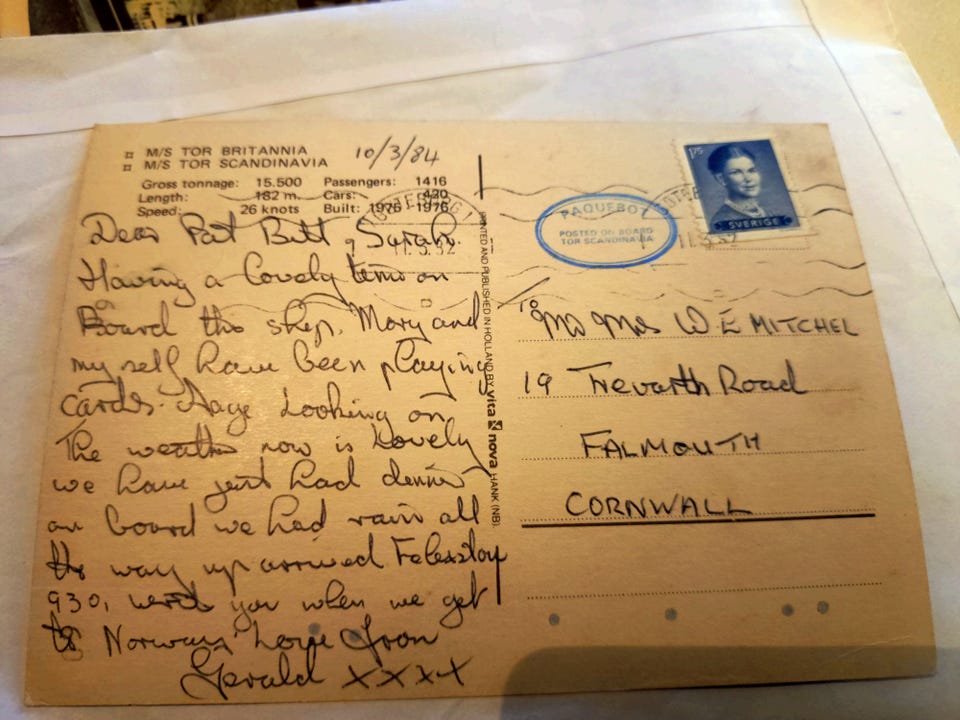 M/S TOR BRITANNIA
M/S TOR SCANDINAVIA
10/3/84
Gross tonnage: 15.500 Passengers: 1416
Length: 182 m. Cars: 420
Speed: 26 knots Built: 1975 - 1976
Dear Pat Bill, Sarah.
Having a lovely time on
Board the ship. Mary and
my self have been playing
cards. Aage Looking on
The weather now is Lovely
we have just had dinner
on board we had rain all
the way up arrived Felexstow
930, write you when we get
to Norway Love Joan
Gerald xxxx
PRINTED AND PUBLISHED IN HOLLAND BY vita nova HANK (NB).
PAQUEBOT
POSTED ON BOARD
TOR SCANDINAVIA
175
SVERIGE
To Mr Mrs W E MITCHEL
19 Trevarth Road
FALMOUTH
CORNWALL